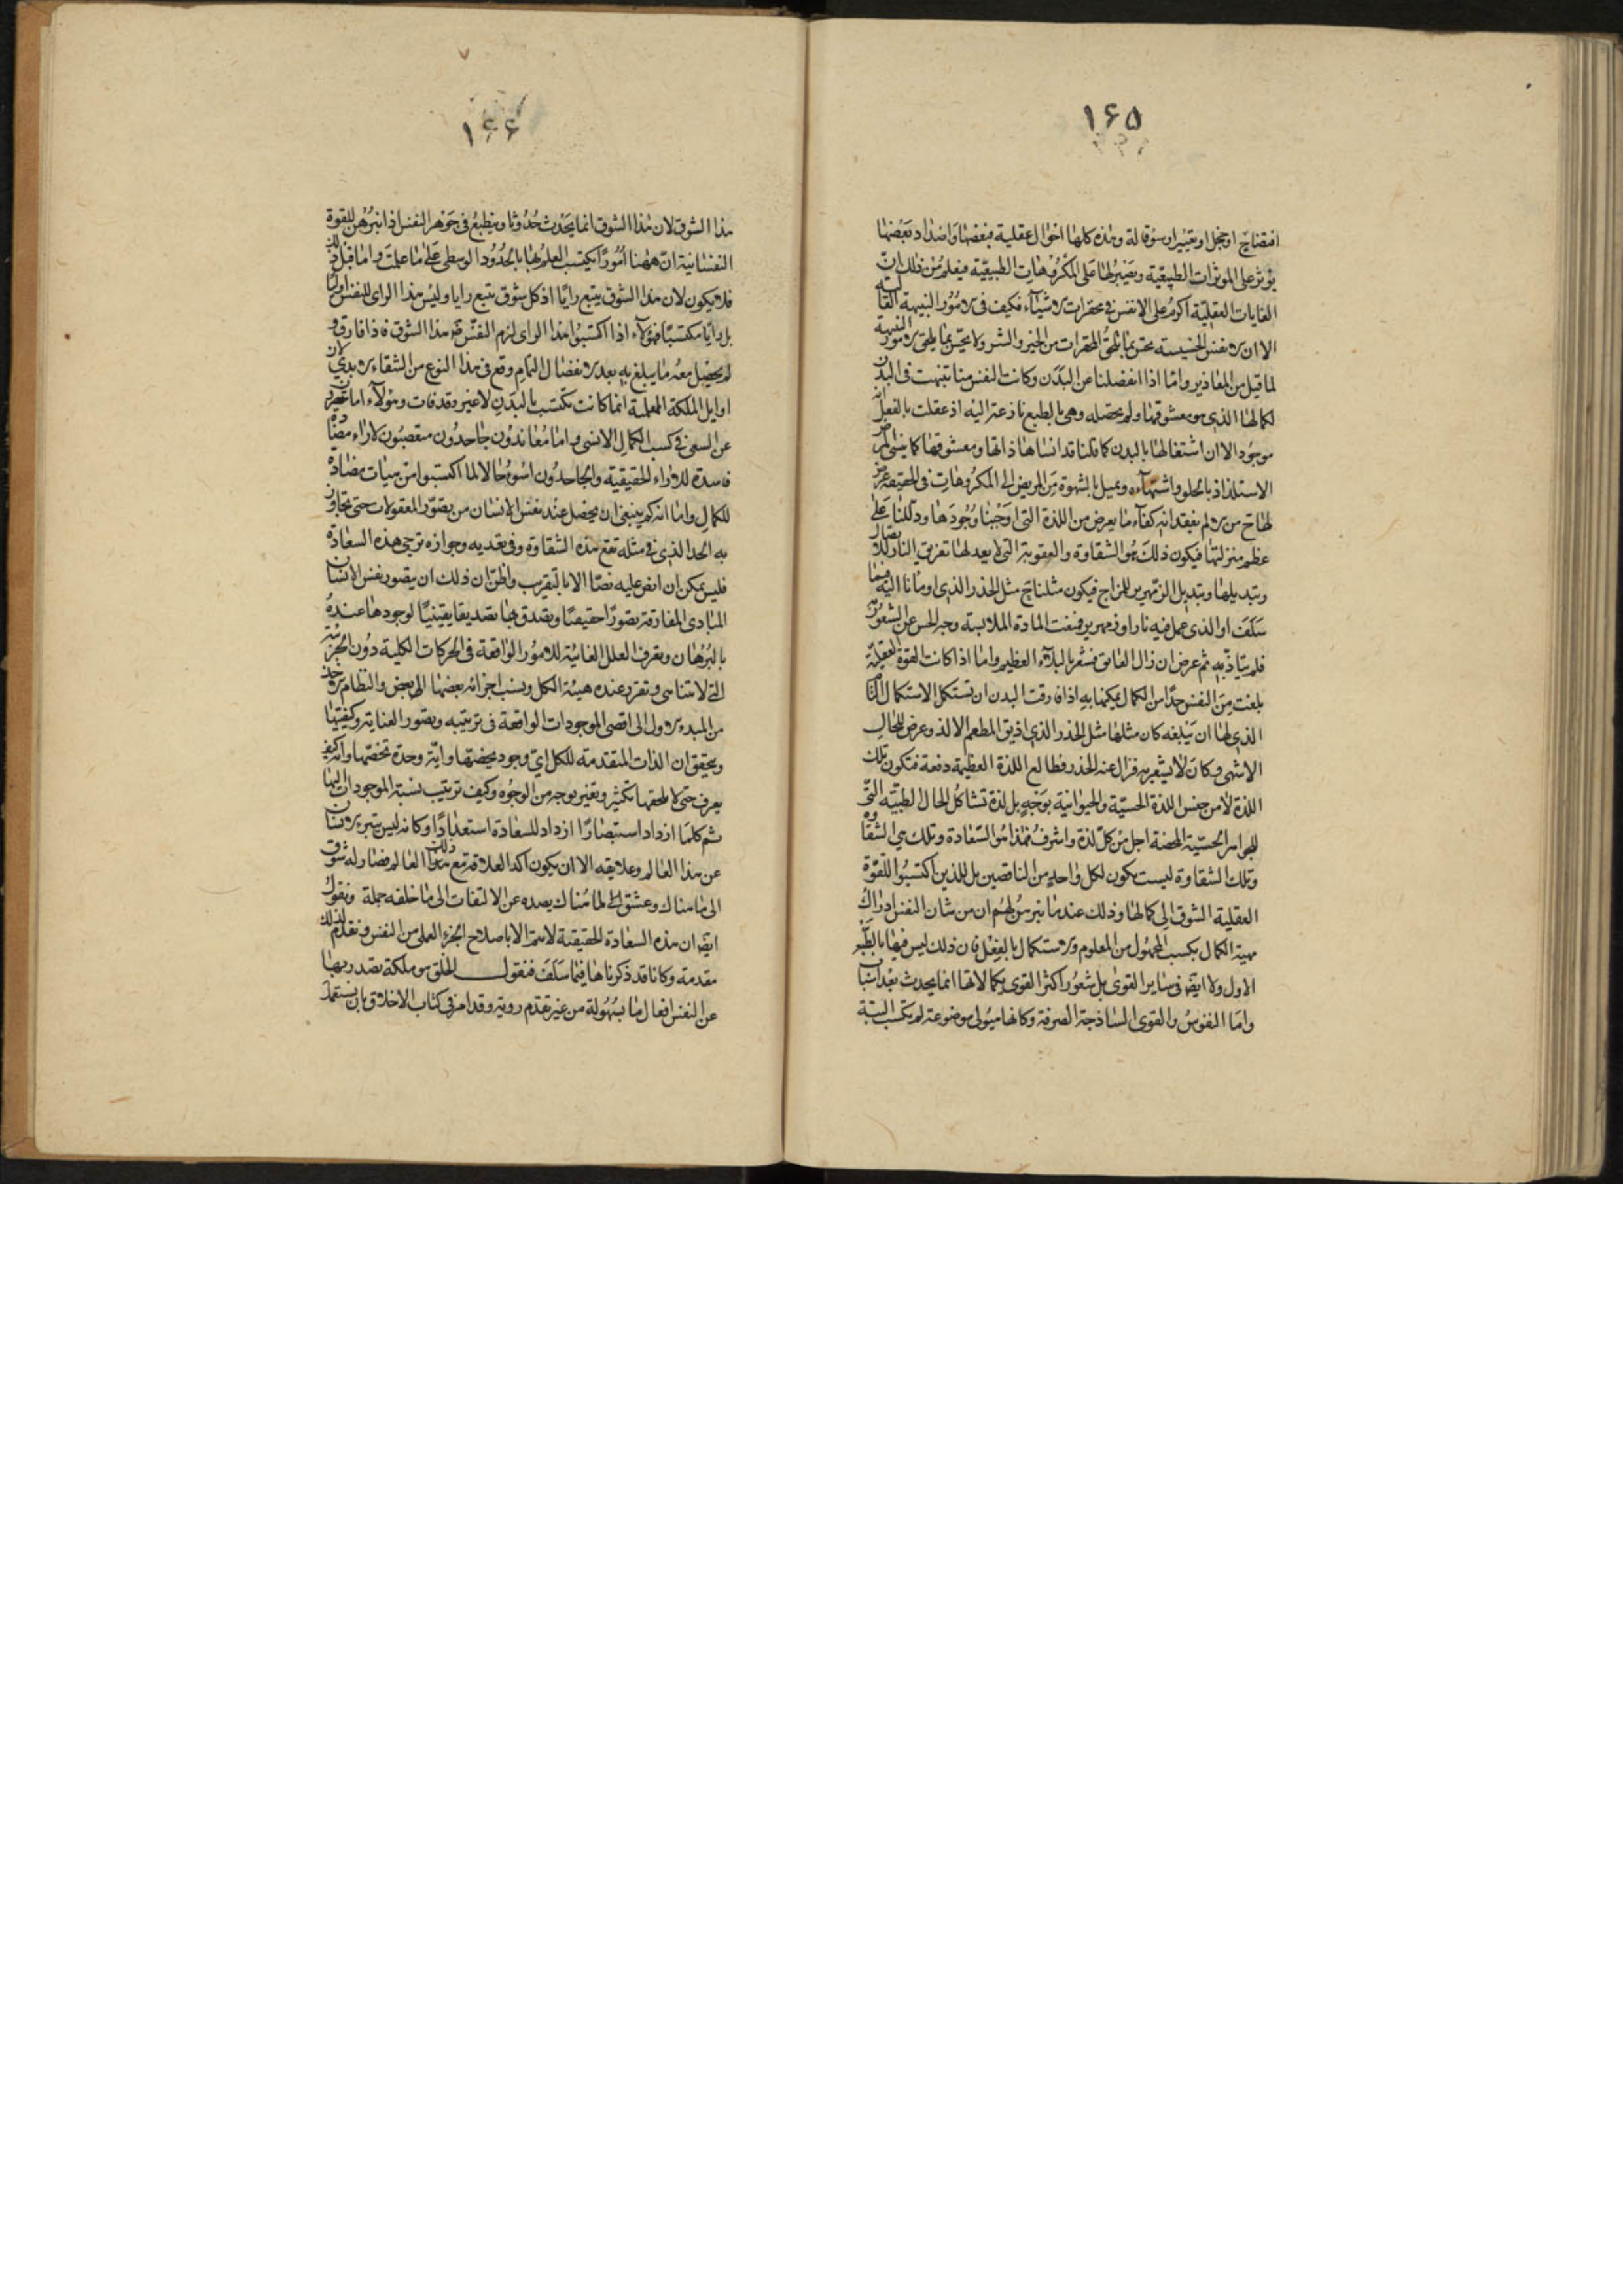 ١٦٥
افتضاح او خجل او تعيير او سوء قالة وهذه كلها احوال عقلية فبعضها واضداد بعضها
يؤثر على المؤثرات الطبيعية ويصبر لها على المكروهات الطبيعية فيعلم من ذلك ان
الغايات العقلية اكرم على الانفس في محقرات الاشياء فكيف في الامور النبيهة العالية
الا ان الانفس الخسيسة تحس بما يلحق المحقرات من الخير والشر ولا تحس بما يلحق الامور النبيهة
لما قيل من المعاذير واما اذا انفصلنا عن البدن وكانت النفس منا تنبهت في البدن
لكمالها الذي هو معشوقها ولم تحصله وهي بالطبع نازعة اليه اذ عقلت بالفعل انه
موجود الا ان اشتغالها بالبدن كما قلنا قد انساها ذاتها ومعشوقها كما ينسي المرض
الاستلذاذ بالحلو واشتهاءه ويميل بالشهوة من المريض الى المكروهات في الحقيقة عرض
لها ح من الالم بفقدانه كفاء ما يعرض من اللذة التي اوجبنا وجودها ودللنا على
عظم منزلتها فيكون ذلك هو الشقاوة والعقوبة التي لا يعدلها تفريق النار للاتصال
وتبديلها وتبديل الزمهرير للمزاج فيكون مثلنا ح مثل الخدر الذي اومأنا اليه فيما
سلف او الذي عمل فيه نار او زمهرير فمنعت المادة الملابسة وجه الحس عن الشعور به
فلم يتاذ به ثم عرض ان زال العائق فشعر بالبلاء العظيم واما اذا كانت القوة العقلية
بلغت من النفس حدا من الكمال يمكنها به اذا فارقت البدن ان تستكمل الاستكمال التام
الذي لها ان يبلغه كان مثلها مثل الخدر الذي اذيق المطعم الالذ وعرض للحال
الاشهى وكان لا يشعر به فزال عنه الخدر فطالع اللذة العظيمة دفعة فتكون تلك
اللذة لا من جنس اللذة الحسية والحيوانية بوجه بل لذة تشاكل الحال الطيبة التي
للجواهر الحسية المحضة اجل من كل لذة واشرف فهذا هو السعادة وتلك هي الشقاوة
وتلك الشقاوة ليست يكون لكل واحد من الناقصين بل للذين اكتسبوا للقوة
العقلية الشوق الى كمالها وذلك عندما تبرهن لهم ان من شان النفس ادراك
مهية الكمال بكسب المجهول من المعلوم والاستكمال بالفعل فان ذلك ليس فيها بالطبع
الاول ولا ايضا في ساير القوى بل شعور اكثر القوى بكمالاتها انما يحدث بعد اسباب
واما النفوس والقوى الساذجة الصرفة وكانها هيولى موضوعة لم يكتسب البتة
١٦٦
هذا الشوق لان هذا الشوق انما يحدث حدوثا وينطبع في جوهر النفس اذا تبرهن للقوة
النفسانية ان ههنا امورا يكتسب العلم بها بالحدود الوسطى على ما علمت واما قبل ذلك
فلا يكون لان هذا الشوق يتبع رايا اذ كل شوق يتبع رايا وليس هذا الراى للنفس اوليا
بل رايا مكتسبا فهؤلاء اذا اكتسبوا هذا الراى لزم النفس ضرورة هذا الشوق فاذا فارق و
لم يحصل معه ما يبلغ به بعد الانفصال التام وقع في هذا النوع من الشقاء الابدي لان
اوايل الملكة العلمية انما كانت تكتسب بالبدن لا غير وقد فات وهؤلاء اما مقصرون
عن السعي في كسب الكمال الانسي واما معاندون جاحدون متعصبون لاراء
فاسدة مضادة للاراء الحقيقية والجاحدون اسوء حالا لما اكتسبوا من هيئات مضادة
للكمال واما انه كم ينبغي ان يحصل عند نفس الانسان من تصور المعقولات حتى تجاوز
به الحد الذي في مثله تقع هذه الشقاوة وفي تعديه وجوازه ترجى هذه السعادة
فليس يمكن ان انص عليه نصا الا بالتقريب واظن ان ذلك ان يتصور نفس الانسان
المبادي المفارقة تصورا حقيقيا ويصدق بها تصديقا يقينيا لوجودها عنده
بالبرهان ويعرف العلل الغائية للامور الواقعة في الحركات الكلية دون الجزئية
التي لا تتناهى ويتقرر عنده هيئة الكل ونسب اجزائه بعضها الى بعض والنظام الاخذ
من المبدء الاول الى اقصى الموجودات الواقعة في ترتيبه ويتصور العناية وكيفيتها
ويتحقق ان الذات المتقدمة للكل اي وجود يخصها واية وحدة تخصها وانه كيف
يعرف حتى لا يلحقها تكثر وتغير بوجه من الوجوه وكيف ترتيب نسبة الموجودات اليها
ثم كلما ازداد استبصارا ازداد للسعادة استعدادا وكانه ليس يتبرء الانسان
عن هذا العالم وعلايقه الا ان يكون اكد العلاقة مع ذلك العالم فصار له شوق
الى ما هناك وعشق لما هناك يصده عن الالتفات الى ما خلفه جملة ونقول
ايضا ان هذه السعادة الحقيقية لا يتم الا باصلاح الجزء العملي من النفس ونقدم لذلك
مقدمة وكانا قد ذكرناها فيما سلف فنقول الخلق هو ملكة تصدر بها
عن النفس افعال ما بسهولة من غير تقدم روية وقد امر في كتاب الاخلاق بان يستعمل